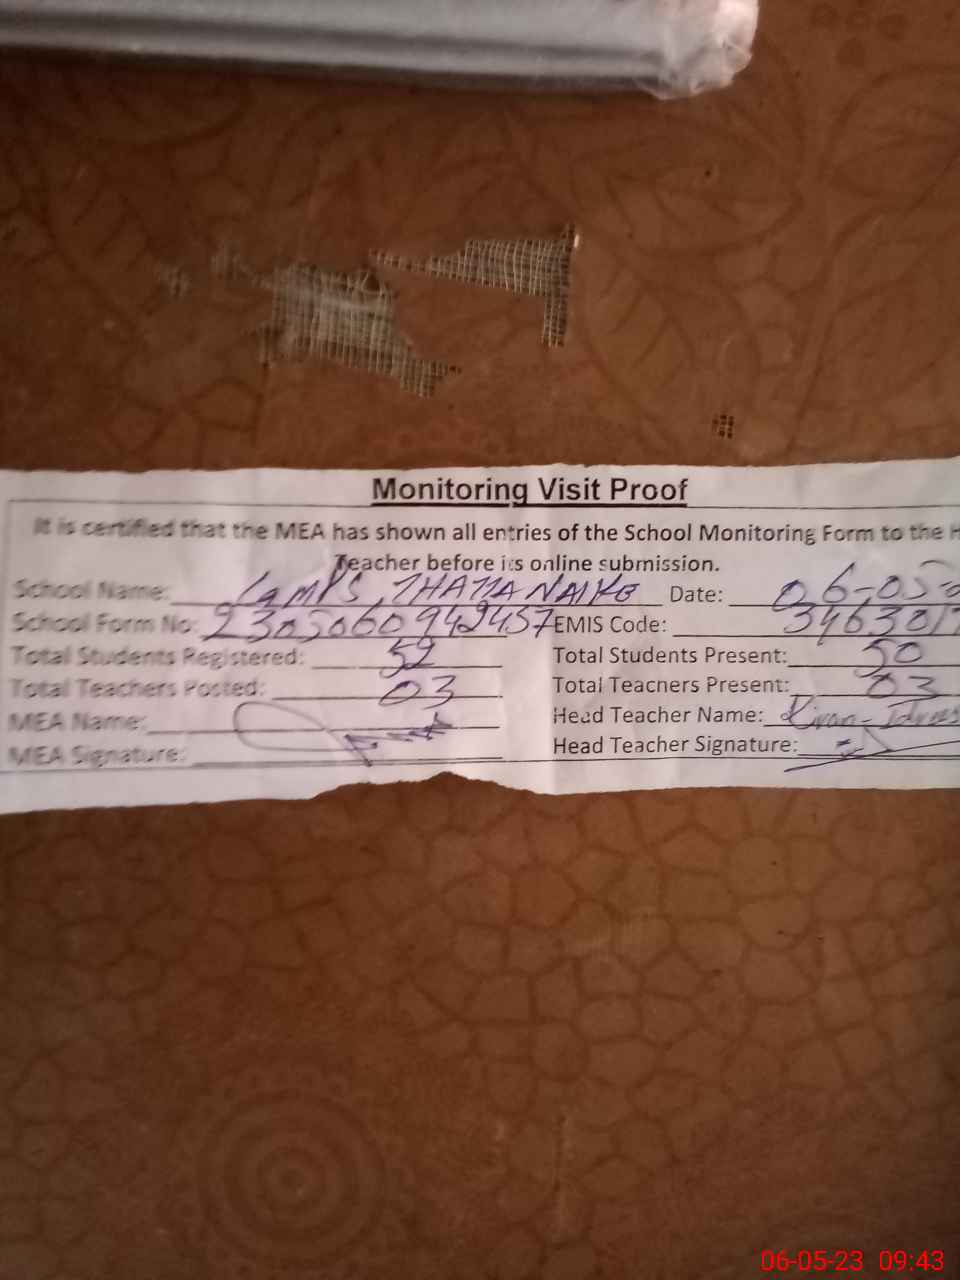 Monitoring Visit Proof
It is certified that the MEA has shown all entries of the School Monitoring Form to the H
Teacher before its online submission.
School Name: THATTA Date: 06-05-
School Form No: 230506094 2457 EMIS Code: 3463017
Total Students Registered: 52 Total Students Present: 50
Total Teachers Posted: 03 Total Teachers Present: 03
MEA Name: Head Teacher Name: Kiran-Idrees
MEA Signature: Head Teacher Signature:
06-05-23 09:43